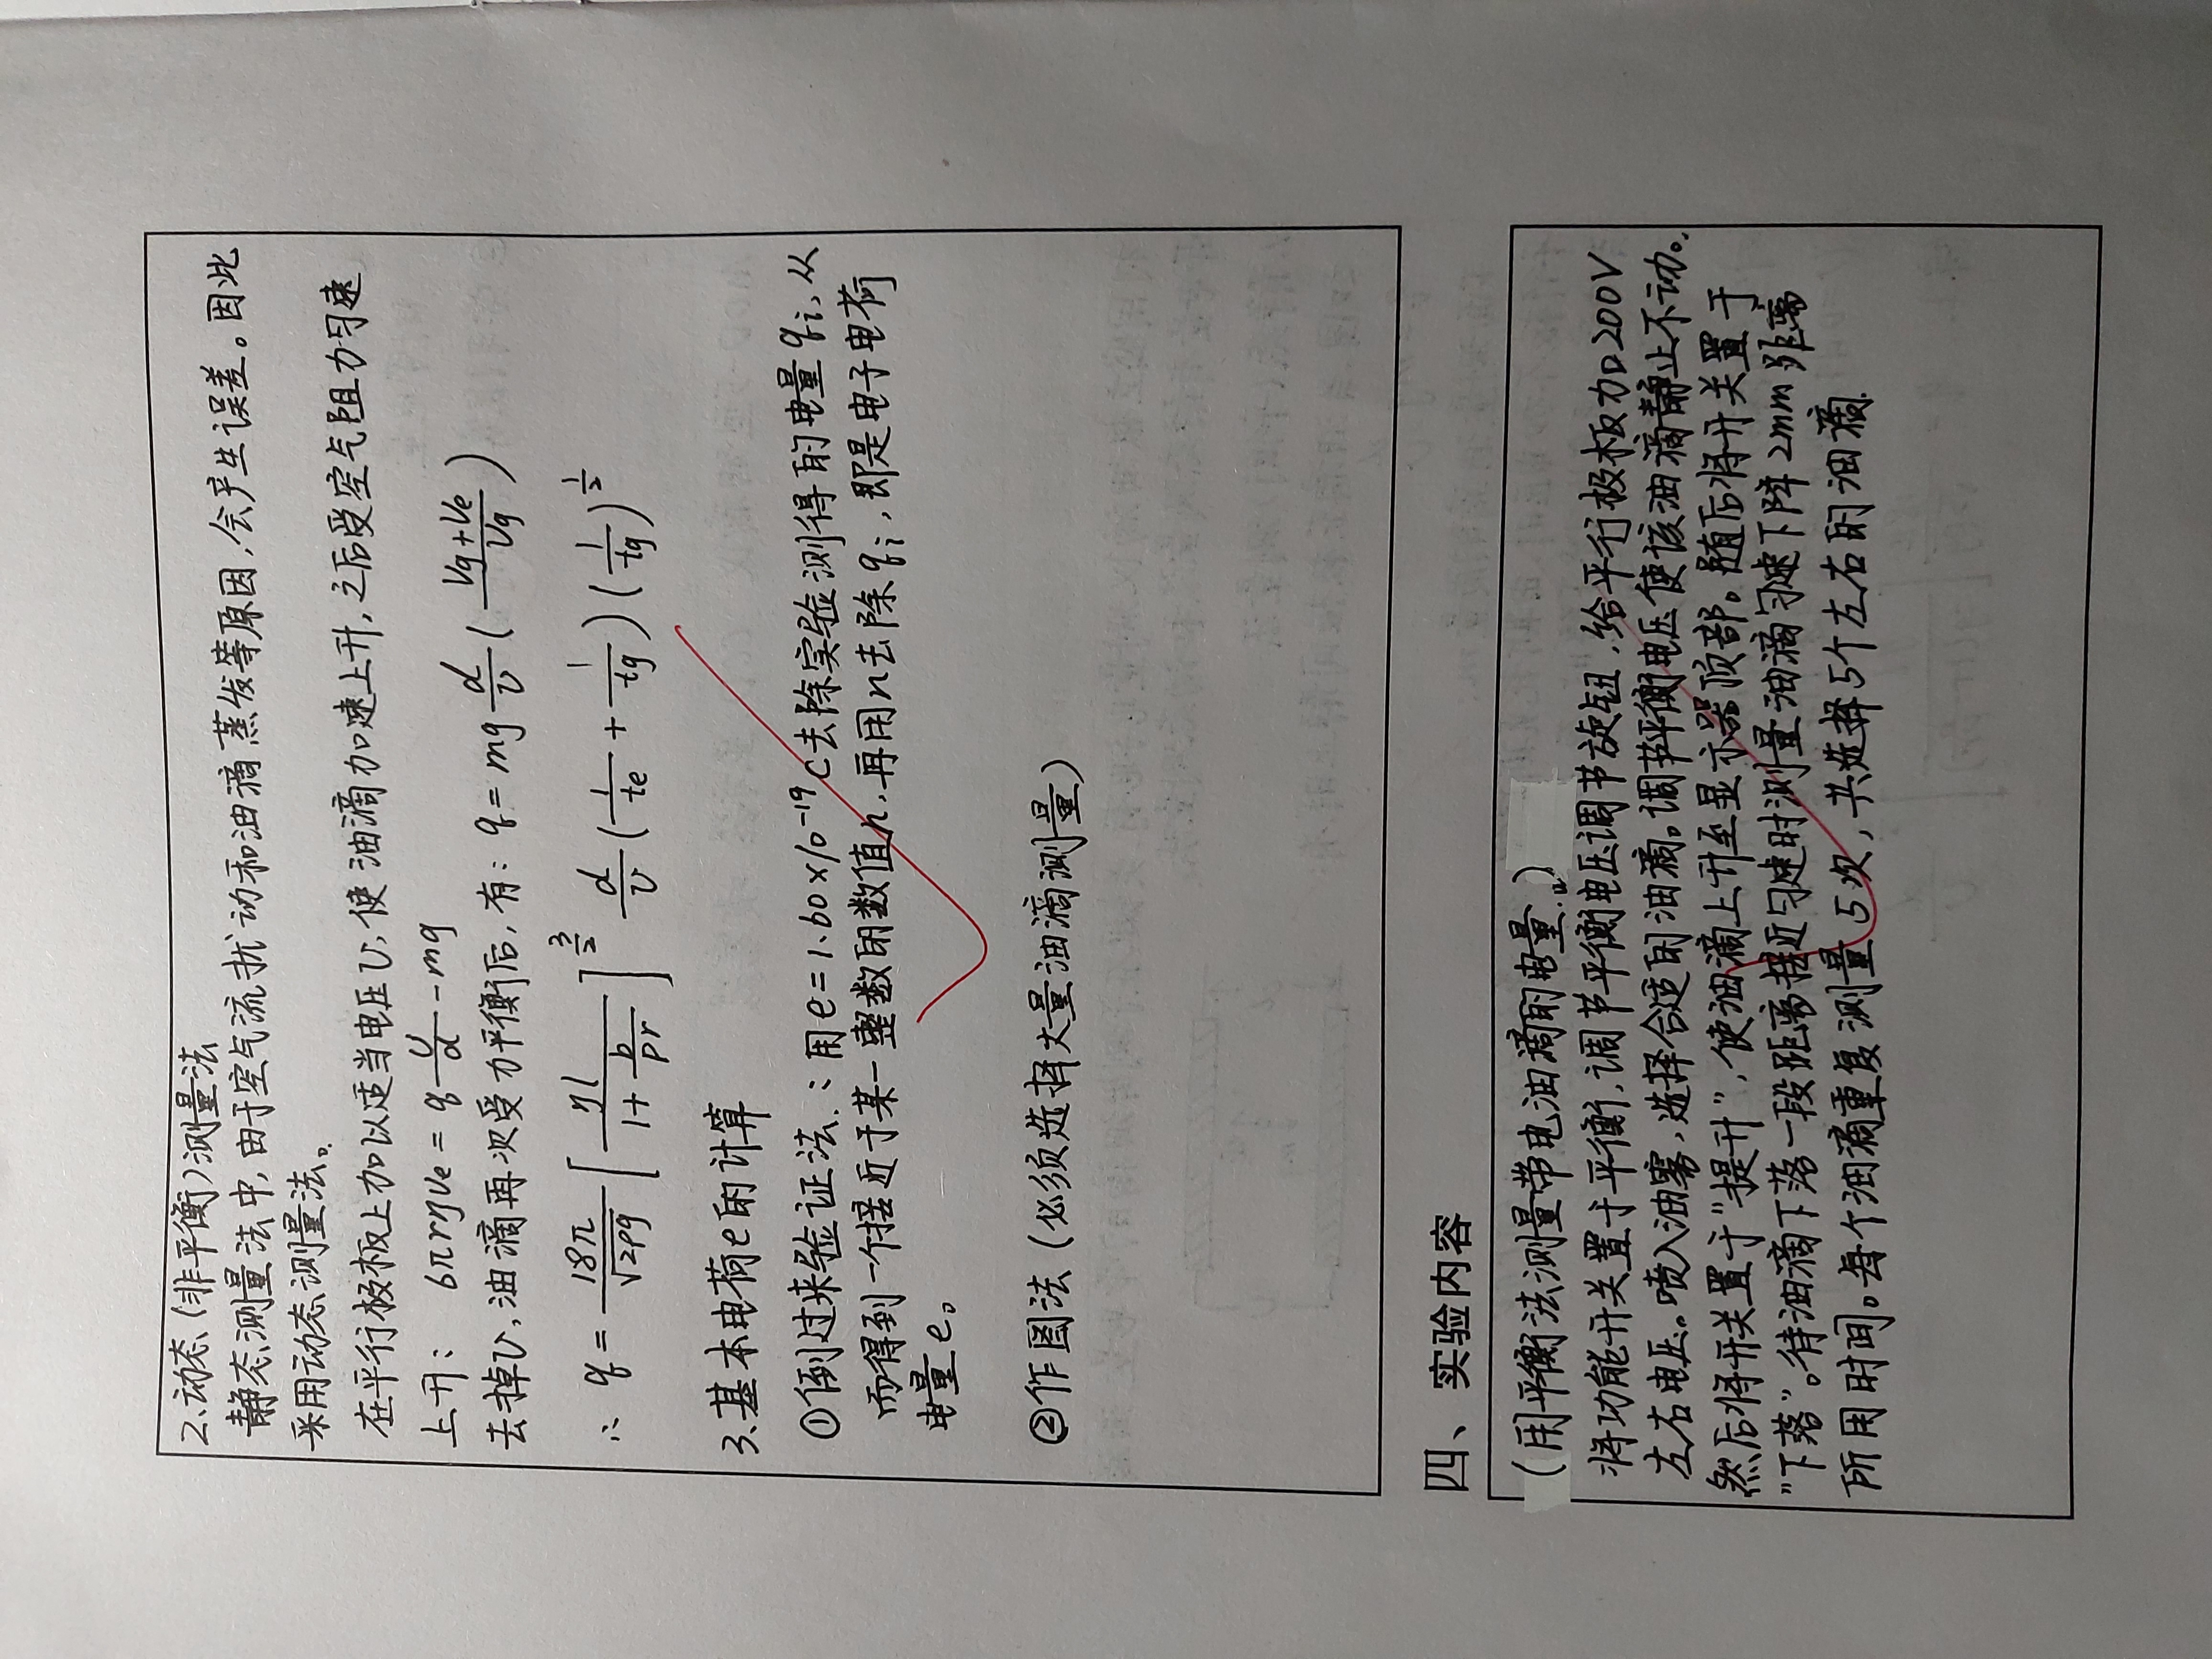 2.动态(非平衡)测量法
静态测量法中,由于空气流扰动和油滴蒸发等原因,会产生误差。因此
采用动态测量法。
在平行极板上加以适当电压U,使油滴加速上升,之后受空气阻力匀速
上升: 6πrηVe = q U/d - mg
去掉U,油滴再次受力平衡后,有: q = mg d/U (Vg+Ve/Vg)
∴ q = 18π/√2ρg [ηl/1+b/pr]^3/2 d/U (1/te + 1/tg)(1/tg)^1/2
3.基本电荷e的计算
①倒过来验证法.:用e=1.60×10⁻¹⁹C去除实验测得的电量qi,从
而得到一个接近于某一整数的数值n,再用n去除qi,即是电子电荷
电量e。
②作图法(必须选择大量油滴测量)
四、实验内容
(用平衡法测量带电油滴的电量。)
将功能开关置于平衡,调节平衡电压调节旋钮,给平行极板加200V
左右电压。喷入油雾,选择合适的油滴。调节平衡电压使该油滴静止不动。
然后将开关置于"提升",使油滴上升至显示器顶部。随后将开关置于
"下落"。待油滴下落一段距离接近匀速时测量油滴匀速下降2mm距离
所用时间。每个油滴重复测量5次,共选择5个左右的油滴.